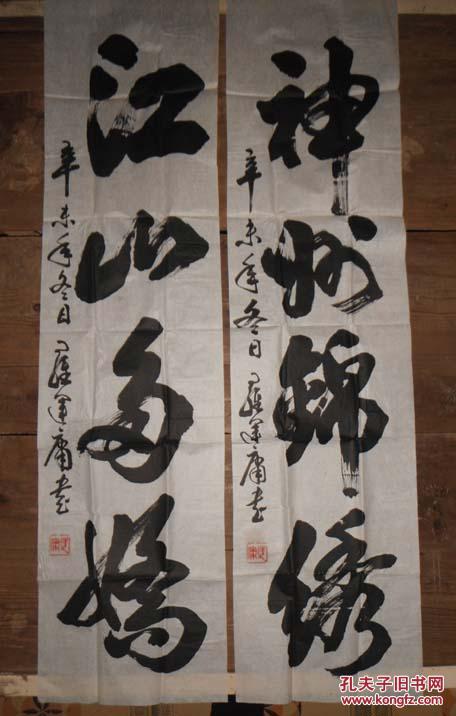 神州錦綉
辛未年冬日 羅運庸書
江山多嬌
辛未年冬日 羅運庸書
孔夫子旧书网
www.kongfz.com